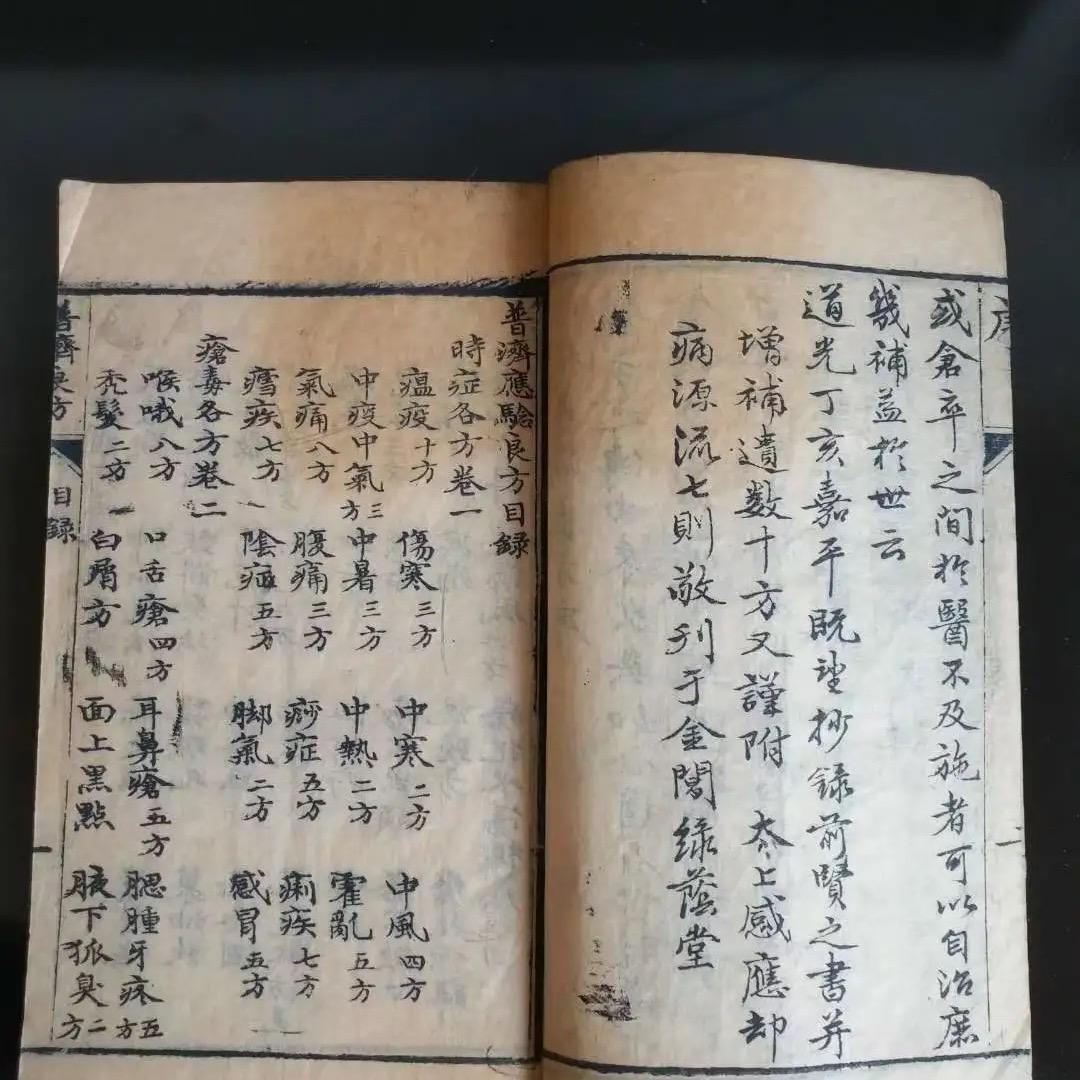 序
或倉卒之間於醫不及施者可以自治庶
幾補益於世云
道光丁亥嘉平既望抄錄前賢之書并
增補遺数十方又謹附 太上感應却
病源流七則敬刋于金閶綠蔭堂
一
普濟應驗良方目録
時症各方卷一
瘟疫十方 傷寒三方 中寒二方 中風四方
中痧中氣三方 中暑三方 中熱二方 霍亂五方
氣痛八方 腹痛三方 痧症五方 痢疾七方
瘧疾七方 陰症五方 脚氣二方 感冒五方
瘡毒各方卷二
喉哦八方 口舌瘡四方 耳鼻瘡五方 腮腫牙疼五方
禿髮二方 白屑一方 面上黑點 腋下狐臭二方
普濟良方
目録
一